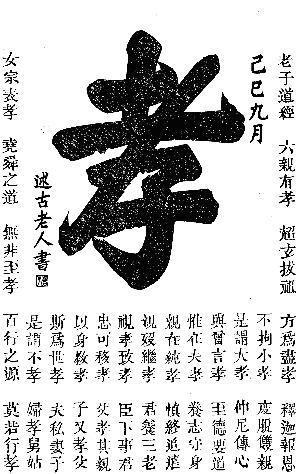 老子道經 六親有孝 超玄拔祖 方為盡孝 釋迦報恩
己巳九月
孝
述古老人書
不拘小孝 度脫雙親
是謂大孝 仲尼傳心
與曾言孝 至德要道
惟在夫孝 養志守身
親在純孝 慎終追遠
親歿繼孝 君養三老
視孝教孝 臣下事君
忠可移孝 父孝其親
以身教孝 子又孝父
斯為世孝 夫私妻子
是謂不孝 婦孝舅姑
女宗表孝 堯舜之道 無非至孝 百行之源 莫若行孝